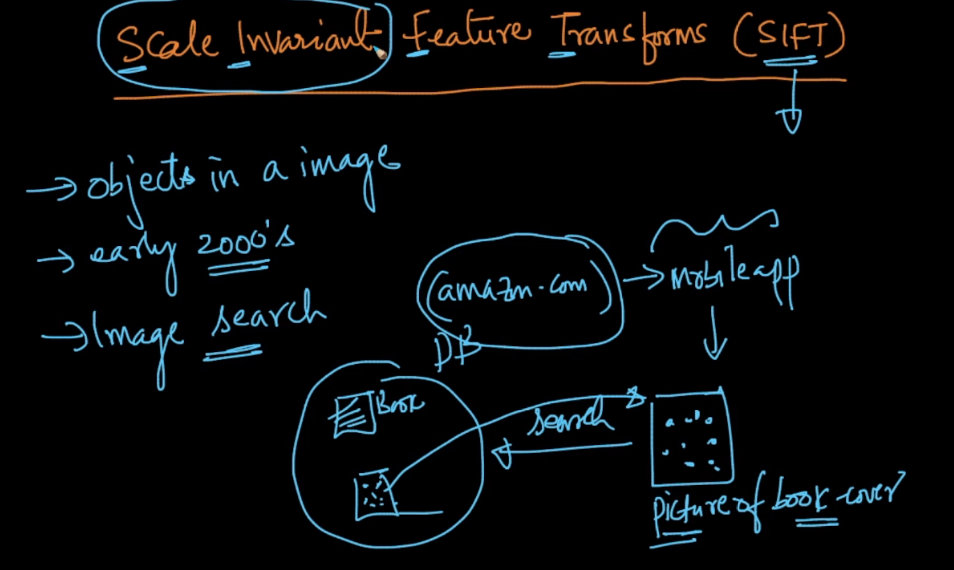 Scale Invariant Feature Transforms (SIFT)
→ objects in a image
→ early 2000's
→ Image search
amazon.com → Mobile app
DB
Book
search
picture of book-cover